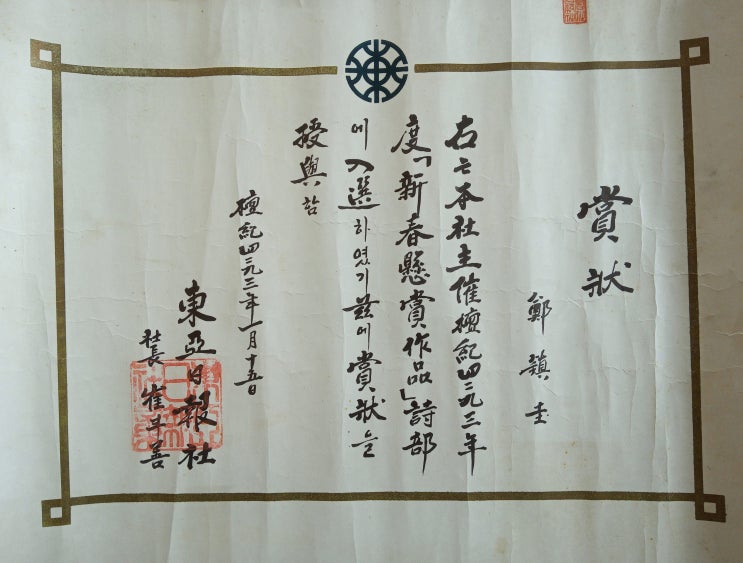 賞狀
鄭鎭圭
右는本社主催檀紀四二九三年
度「新春懸賞作品」詩部
에入選하였기玆에賞狀을
授與함
檀紀四二九三年一月十五日
東亞日報社
社長 崔斗善